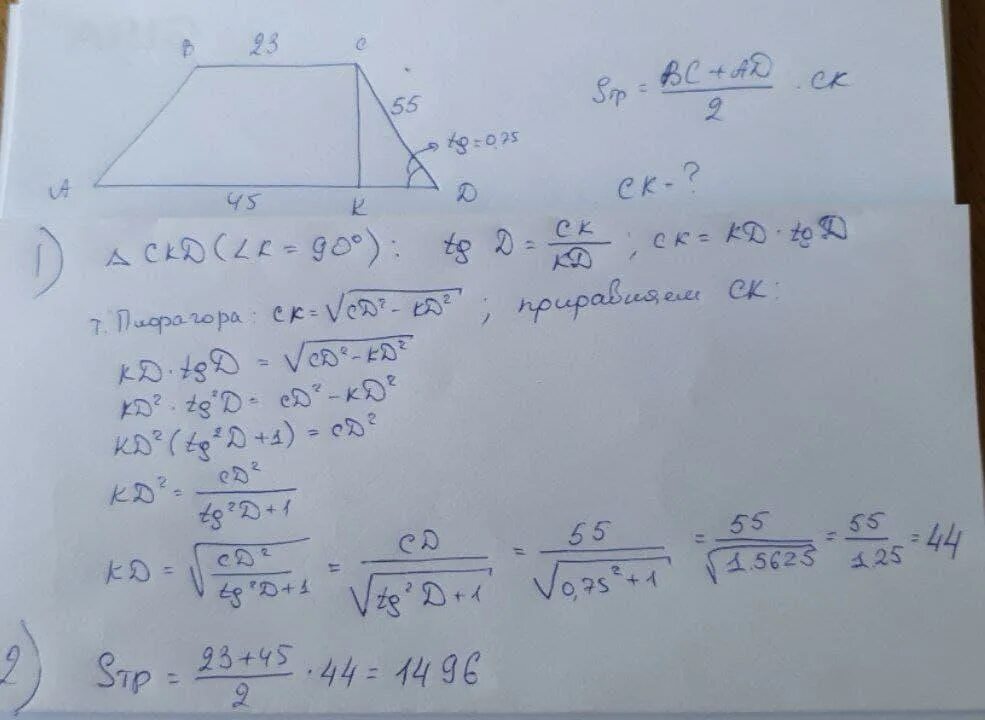 B 23 C
55
tg = 0,75
A 45 K D
Sтр = BC + AD / 2 · CK
CK - ?
1) Δ CKD (∠K = 90°): tg D = CK / KD ; CK = KD · tg D
т. Пифагора: CK = √(CD² - KD²) ; приравняем CK:
KD · tg D = √(CD² - KD²)
KD² · tg²D = CD² - KD²
KD² (tg²D + 1) = CD²
KD² = CD² / tg²D + 1
KD = √(CD² / tg²D + 1) = CD / √(tg²D + 1) = 55 / √(0,75² + 1) = 55 / √1.5625 = 55 / 1.25 = 44
2) Sтр = 23 + 45 / 2 · 44 = 1496